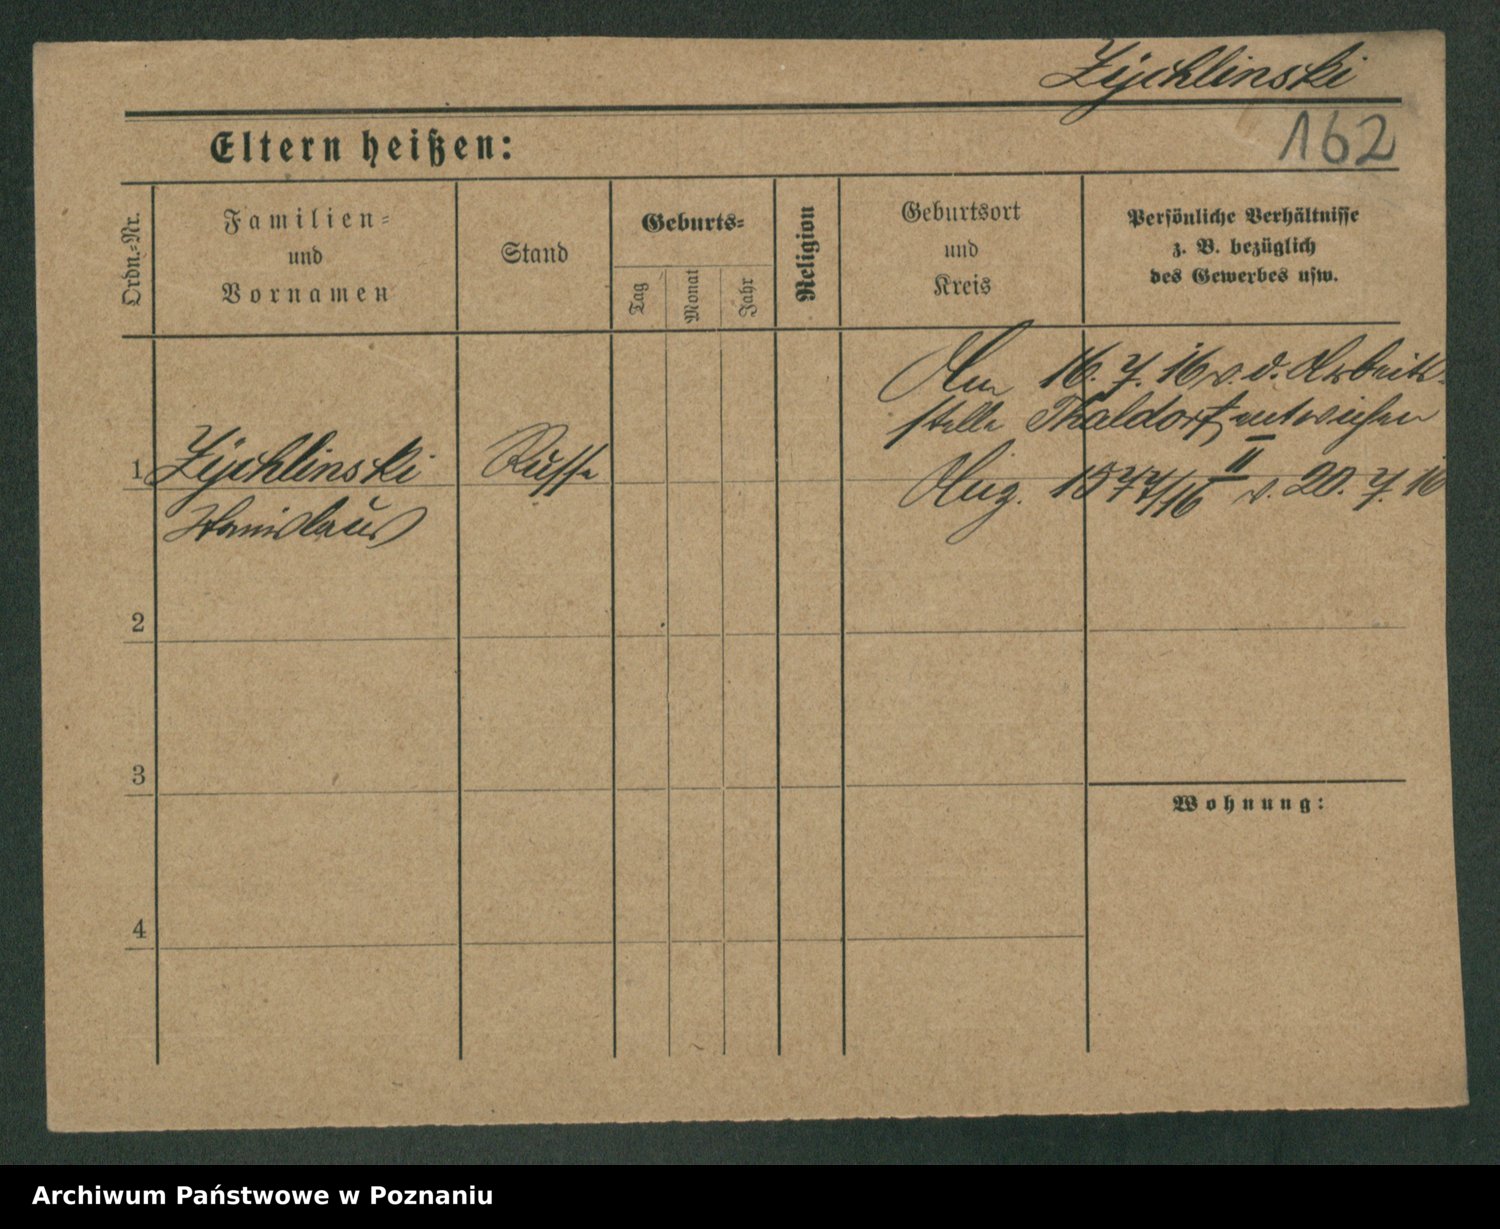 Zÿchlinski
162
Eltern heißen:
Ordn.-Nr.
Familien-
und
Vornamen
Stand
Geburts-
Tag
Monat
Jahr
Religion
Geburtsort
und
Kreis
Persönliche Verhältnisse
z. B. bezüglich
des Gewerbes usw.
Am 16.7.16 v. d. Arbeits-
stelle Thaldorf entwichen
1 Zÿchlinski Russe
Stanislaus
II
v. 20.7.16
2
3
Wohnung:
4
Archiwum Państwowe w Poznaniu